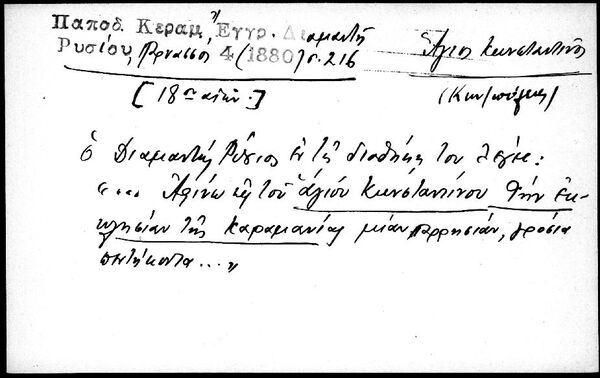 Παποδ. Κεραμ. Ἔγγρ. Διαμαντῆ
Ρυσίου, Παρνασσός 4 (1880) σ. 216
Ἅγιος Κωνσταντῖνος
[18ος αἰών.]
(Κων/πόλεως)
ὁ Διαμαντῆς Ρύσιος ἐν τῇ διαθήκῃ του λέγει:
"... Ἀφίνω εἰς τοῦ ἁγίου Κωνσταντίνου τὴν ἐκ-
κλησίαν τῆς Καραμανίας μίαν παρρησίαν, γρόσια
πεντήκοντα..."